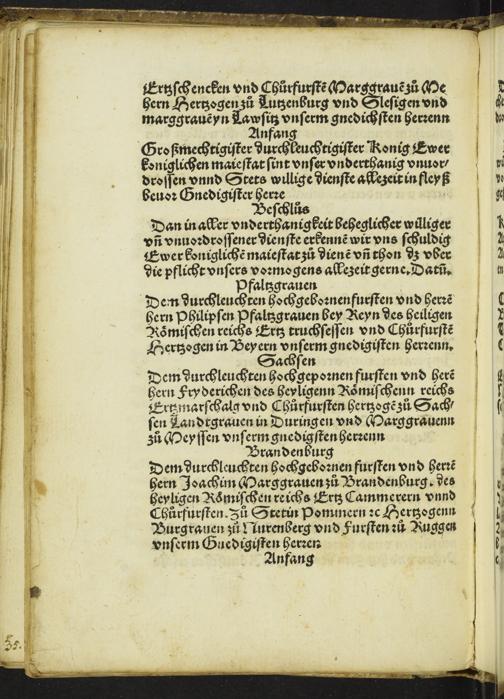 Ertzschencken vnd Chürfurstē Marggrauē zů Me
hern Hertzogen zů Lutzenburg vnd Slesigen vnd
marggrauē yn Lawsitz vnserm gnedichsten herrenn
Anfang
Großmechtigister durchleuchtigister Konig Ewer
koniglichen maiestat sint vnser vnderthanig vnuor-
drossen vnnd Stets willige dienste allezeit in fleyß
beuor Gnedigister herre
Beschlůs
Dan in aller vnderthanigkeit beheglicher williger
vñ vnuordrossener dienste erkennē wir vns schuldig
Ewer koniglichē maiestat zů dienē vñ thon dz vber
die pflicht vnsers vormogens allezeit gerne. Datū.
Pfaltzgrauen
Dem durchleuchten hochgebornen fursten vnd herrē
hern Philipsen Pfaltzgrauen bey Reyn des heiligen
Römischen reichs Ertz truchsessen vnd Chürfurstē
Hertzogen in Beyern vnserm gnedigisten herrenn.
Sachsen
Dem durchleuchten hochgepornen fursten vnd herē
hern Fryderichen des heyligenn Römischenn reichs
Ertzmarschalg vnd Chürfursten hertzogē zů Sach-
sen Landtgrauen in Duringen vnd Marggrauenn
zů Meyssen vnserm gnedigsten herrenn
Brandenburg
Dem durchleuchten hochgebornen fursten vnd herrē
hern Joachim Marggrauen zů Brandenburg. des
heyligen Römischen reichs Ertz Cammerern vnnd
Chürfursten. Zů Stetin Pommern ꝛc Hertzogenn
Burgrauen zů Nurenberg vnd Fursten zů Ruggen
vnserm Gnedigisten herren
Anfang
35.